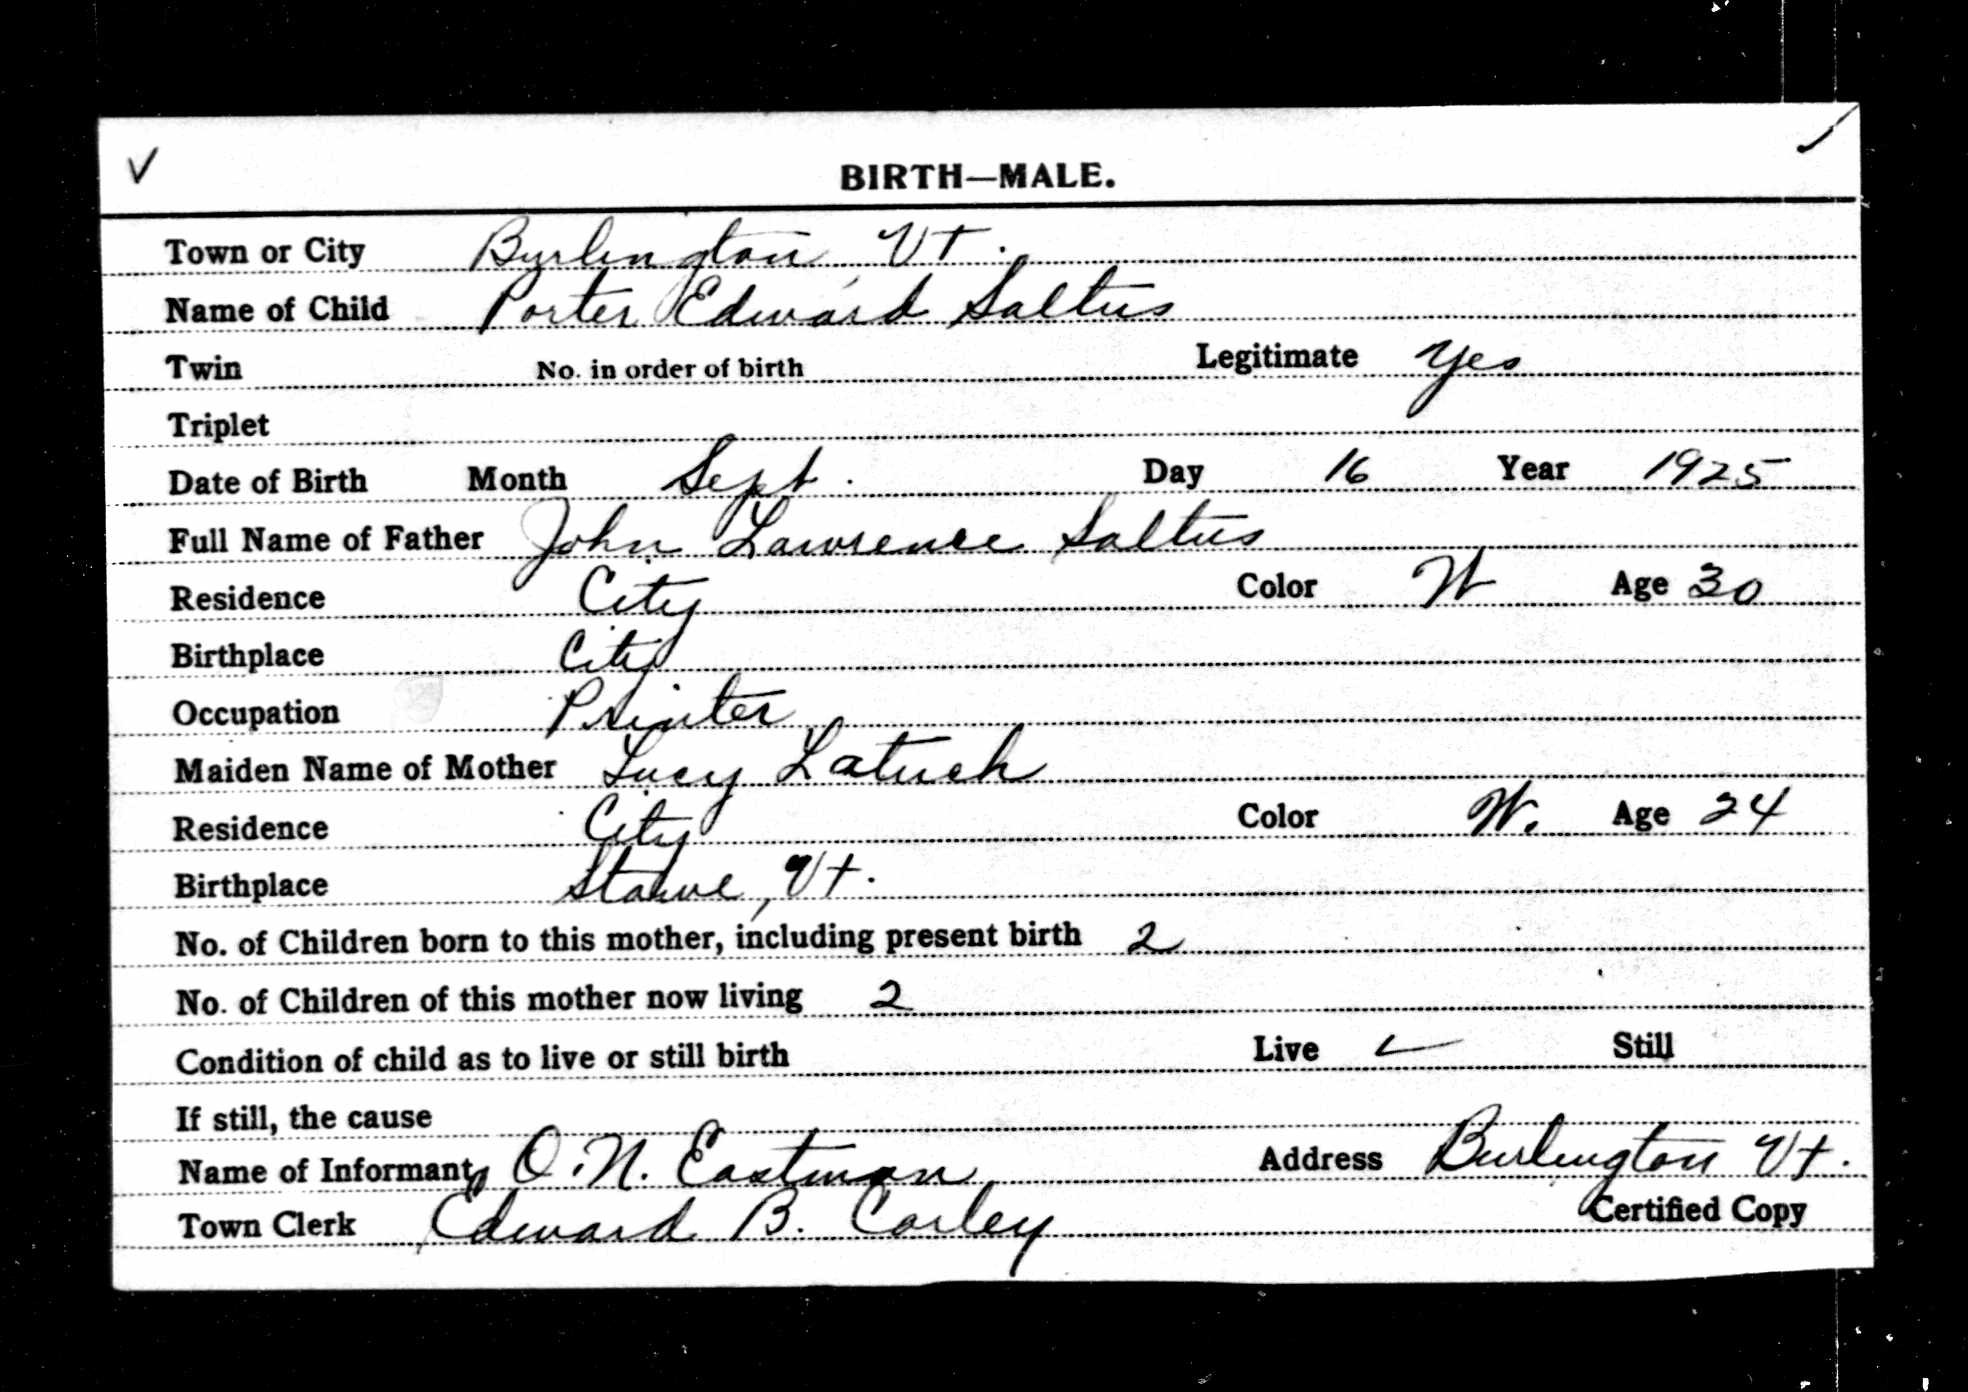 BIRTH—MALE.
Town or City Burlington, Vt.
Name of Child Porter Edward Saltus
Twin No. in order of birth Legitimate Yes
Triplet
Date of Birth Month Sept. Day 16 Year 1925
Full Name of Father John Lawrence Saltus
Residence City Color W Age 30
Birthplace City
Occupation Printer
Maiden Name of Mother Lucy Latuch
Residence City Color W. Age 24
Birthplace Stowe, Vt.
No. of Children born to this mother, including present birth 2
No. of Children of this mother now living 2
Condition of child as to live or still birth Live ✓ Still
If still, the cause
Name of Informant O. N. Eastman Address Burlington Vt.
Town Clerk Edward B. Corley Certified Copy